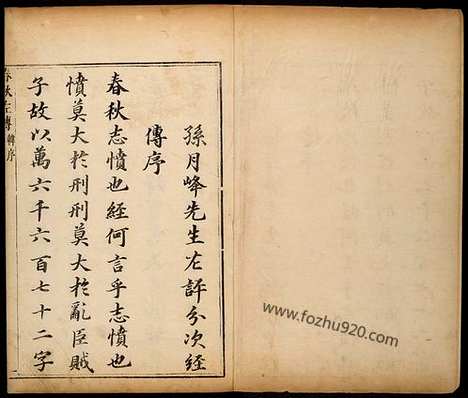 孫月峰先生左評分次經
傳序
春秋志憤也經何言乎志憤也
憤莫大於刑刑莫大於亂臣賊
子故以萬六千六百七十二字
春秋左傳 韓序
www.fozhu920.com